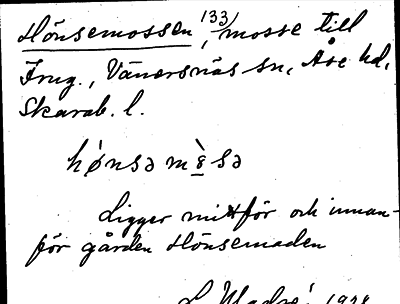 Hönsemossen 133/, mosse till
Frug., Vänersnäs sn, Åse hd,
Skarab. l.
hǿnsə mɛ̀sə
Ligger mittför och innan-
för gården Hönsemaden
1928